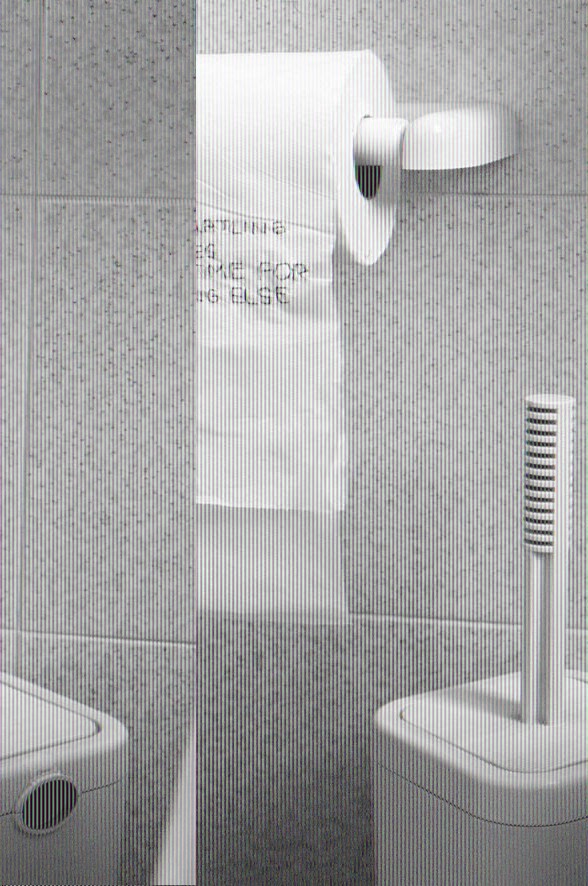 ARTLING
IME FOR
NG ELSE